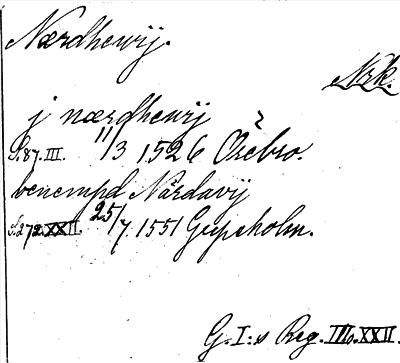 Nærdhewij.
Nrk.
j nærdhewij
S.87.III. 11/3 1526 Örebro.
benempd Nårdavij
S.272.XXII. 25/7. 1551 Gripsholm.
G.I:s Reg. III.XXII.